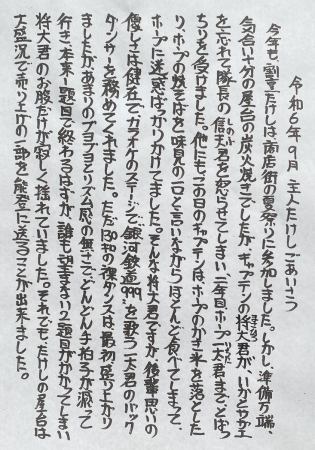 令和6年9月 主人たけしごあいさつ
今年も割烹たけしは商店街の夏祭りに参加しました。しかし、準備万端、
気合い十分の屋台の炭火焼きでしたが、キャプテンの将大君が、いかとやか工
を忘れて隊長の信夫君を怒らせてしまい、二年目ホープ一太君までとばっ
ちりを受けました。他にもこの日のキャプテンは、ホープのかき氷を落とした
り、ホープの焼そばを味見の一口と言いながらほとんど食べてしまって、
ホープに迷惑ばっかりかけてました。そんな将大君ですが、後輩思いの
優しさは健在で、カラオケのステージで「銀河鉄道999」を歌う一太君のバック
ダンサーを務めてくれました。ただ130キロの裸ダンスは最初盛り上がり
ましたが、あまりのブヨブヨとリズム感の無さで、どんどん手拍子が減って
行き、本来1題目で終わるはずが、誰も望まない2題目がかかってしまい
将大君のお腹だけが寂しく揺れていました。それでも、たけしの屋台は
大盛況で売り上げの一部を能登に送ることが出来ました。